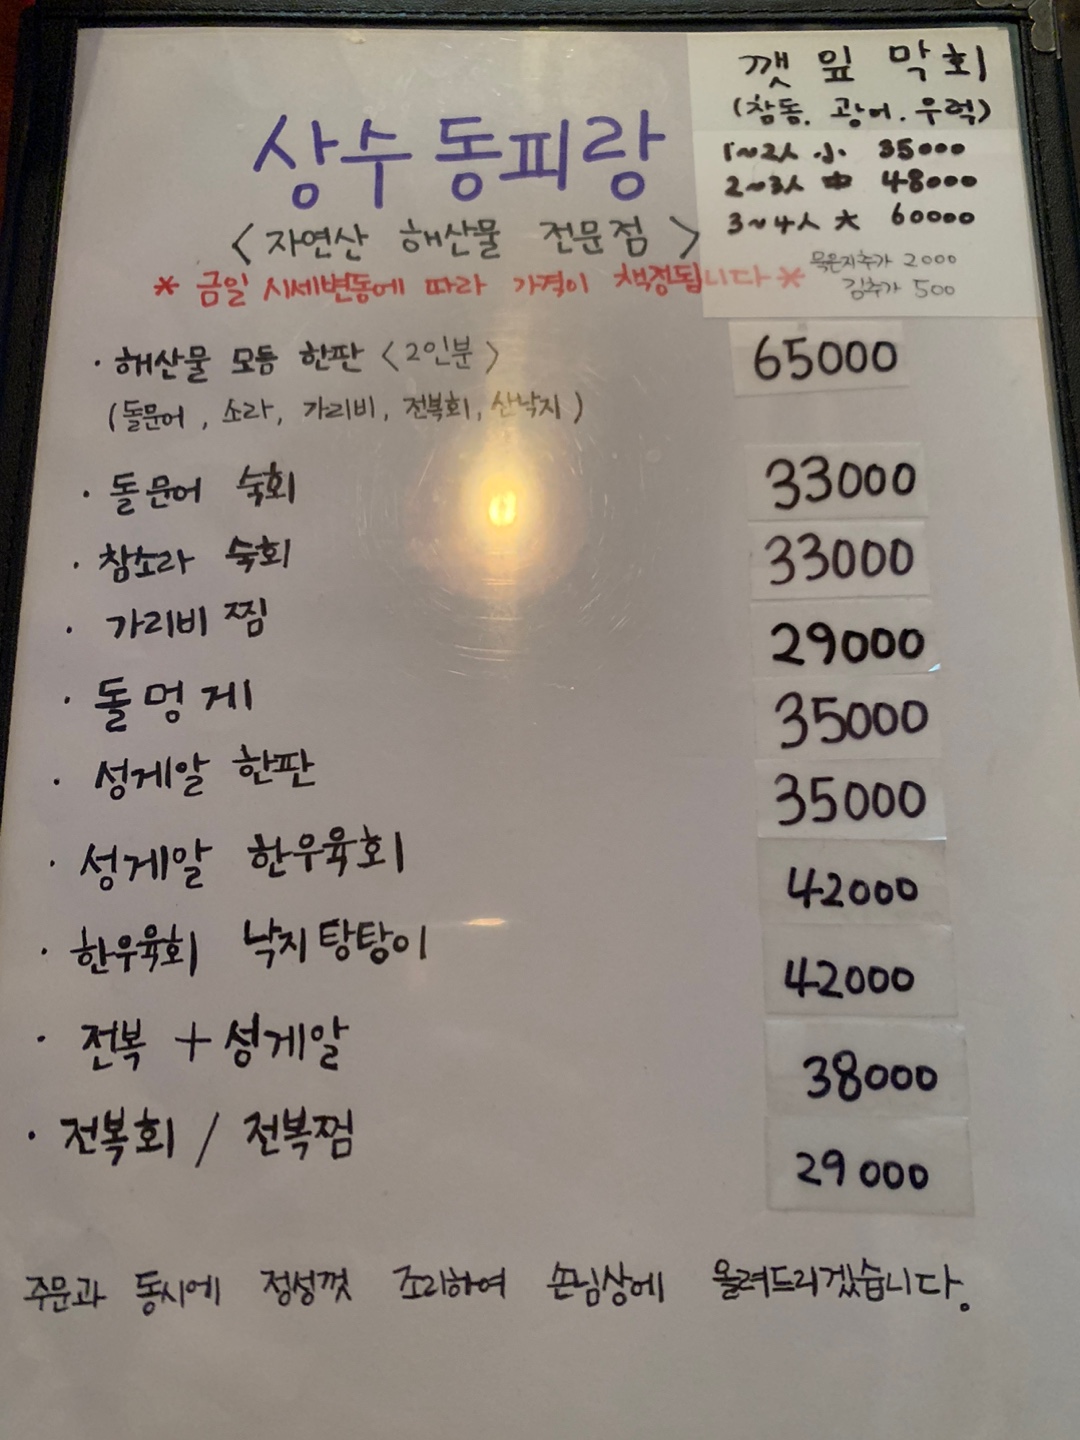 깻잎 막회
(참동. 광어. 우럭)
1~2人 小. 35000
2~3人 中 48000
3~4人 大 60000
묵은지추가 2000
김추가 500
상수동피랑
<자연산 해산물 전문점>
* 금일 시세변동에 따라 가격이 책정됩니다 *
· 해산물 모듬 한판 <2인분> 65000
(돌문어, 소라, 가리비, 전복회, 산낙지)
· 돌문어 숙회 33000
· 참소라 숙회 33000
· 가리비 찜 29000
· 돌멍게 35000
· 성게알 한판 35000
· 성게알 한우육회 42000
· 한우육회 낙지탕탕이 42000
· 전복 + 성게알 38000
· 전복회 / 전복찜 29000
주문과 동시에 정성껏 조리하여 손님상에 올려드리겠습니다.